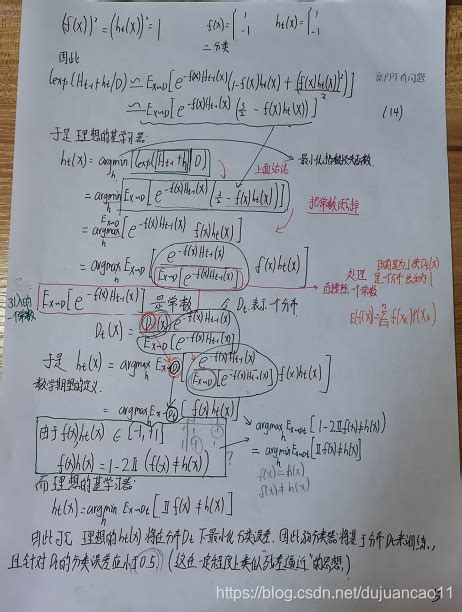 (f(x))² = (ht(x))² = 1 f(x) = { 1 -1 ht(x) = { 1 -1
二分类
因此
lexp(Ht-1+ht|D) ≃ Ex~D[e^-f(x)Ht-1(x) (1-f(x)ht(x) + (f(x)ht(x))²/2)]
≃ Ex~D[e^-f(x)Ht-1(x) (3/2 - f(x)ht(x))] (14)
于是 理想的基学习器:
ht(x) = argmin h lexp(Ht-1+h|D) 最小化指数损失函数
上面结论
= argmin h Ex~D[e^-f(x)Ht-1(x) (3/2 - f(x)h(x))]
把常数
= argmax h Ex~D[e^-f(x)Ht-1(x) f(x)h(x)]
= argmax h Ex~D[e^-f(x)Ht-1(x) / Ex~D[e^-f(x)Ht-1(x)] f(x)h(x)]
处理
引入的
个常数
Ex~D[e^-f(x)Ht-1(x)] 是常数 令 Dt 表示一个分布
Dt(x) = D(x) e^-f(x)Ht-1(x) / Ex~D[e^-f(x)Ht-1(x)]
于是 ht(x) = argmax h Ex~D[e^-f(x)Ht-1(x) / Ex~D[e^-f(x)Ht-1(x)] f(x)h(x)]
数学期望的定义
= argmax h Ex~Dt[f(x)h(x)]
由于 f(x)h(x) ∈ {-1,+1}
f(x)h(x) = 1-2Ⅱ(f(x)≠h(x))
argmax h Ex~Dt[1-2Ⅱf(x)≠h(x)]
= argmin h Ex~Dt[Ⅱf(x)≠h(x)]
f(x)=h(x)
f(x)≠h(x)
而理想的基学习器:
ht(x) = argmin h Ex~Dt[Ⅱf(x)≠h(x)]
因此 理想的ht(x)将在分布Dt下最小化分类误差. 因此 分类器将基于分布Dt来训练,
且针对Dt的分类误差应小于0.5, (这在一定程度上类似"残差逼近"的思想)
https://blog.csdn.net/dujuancao11